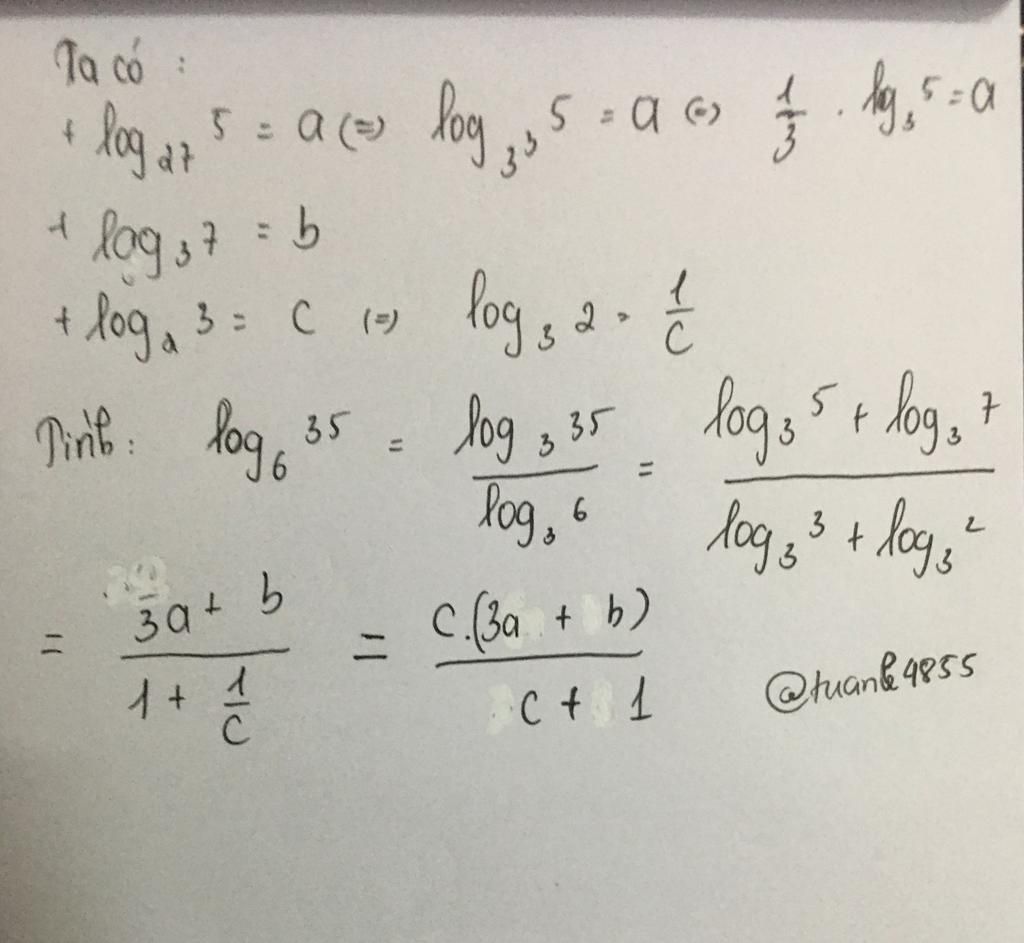 Ta có :
+ log₂₇ 5 = a (=) log₃³ 5 = a (=) 1/3 . lg₃ 5 = a
+ log₃ 7 = b
+ log₂ 3 = c (=) log₃ 2 = 1/c
Tính: log₆ 35 = log₃ 35 / log₃ 6 = (log₃ 5 + log₃ 7) / (log₃ 3 + log₃ 2)
= (3a + b) / (1 + 1/c) = c.(3a + b) / (c + 1)
@tuanle4855